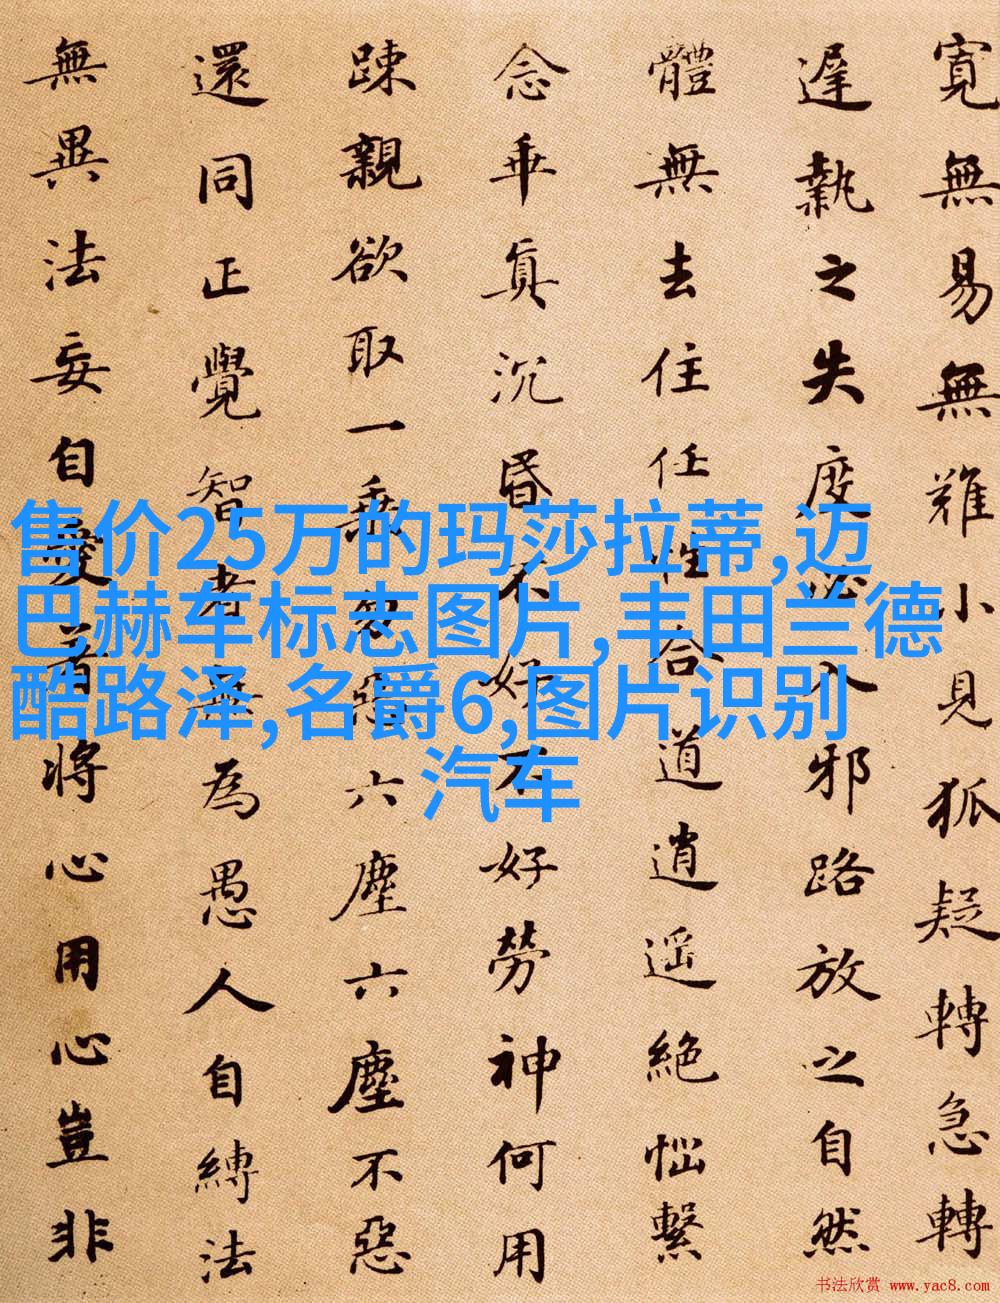 寬無易無難小見狐疑轉急轉
遲執之失度必入邪路放之自然
體無去住任性合道逍遥絕惱繫
念乖真沉昏不好不好勞神何用
踈親欲取一乘勿惡六塵六塵不惡
還同正覺智者無為愚人自縛法
無異法妄自愛著將心用心豈非
售价25万的玛莎拉蒂,迈
巴赫车标志图片,丰田兰德
酷路泽,名爵6,图片识别
汽车
书法欣赏 www.yac8.com